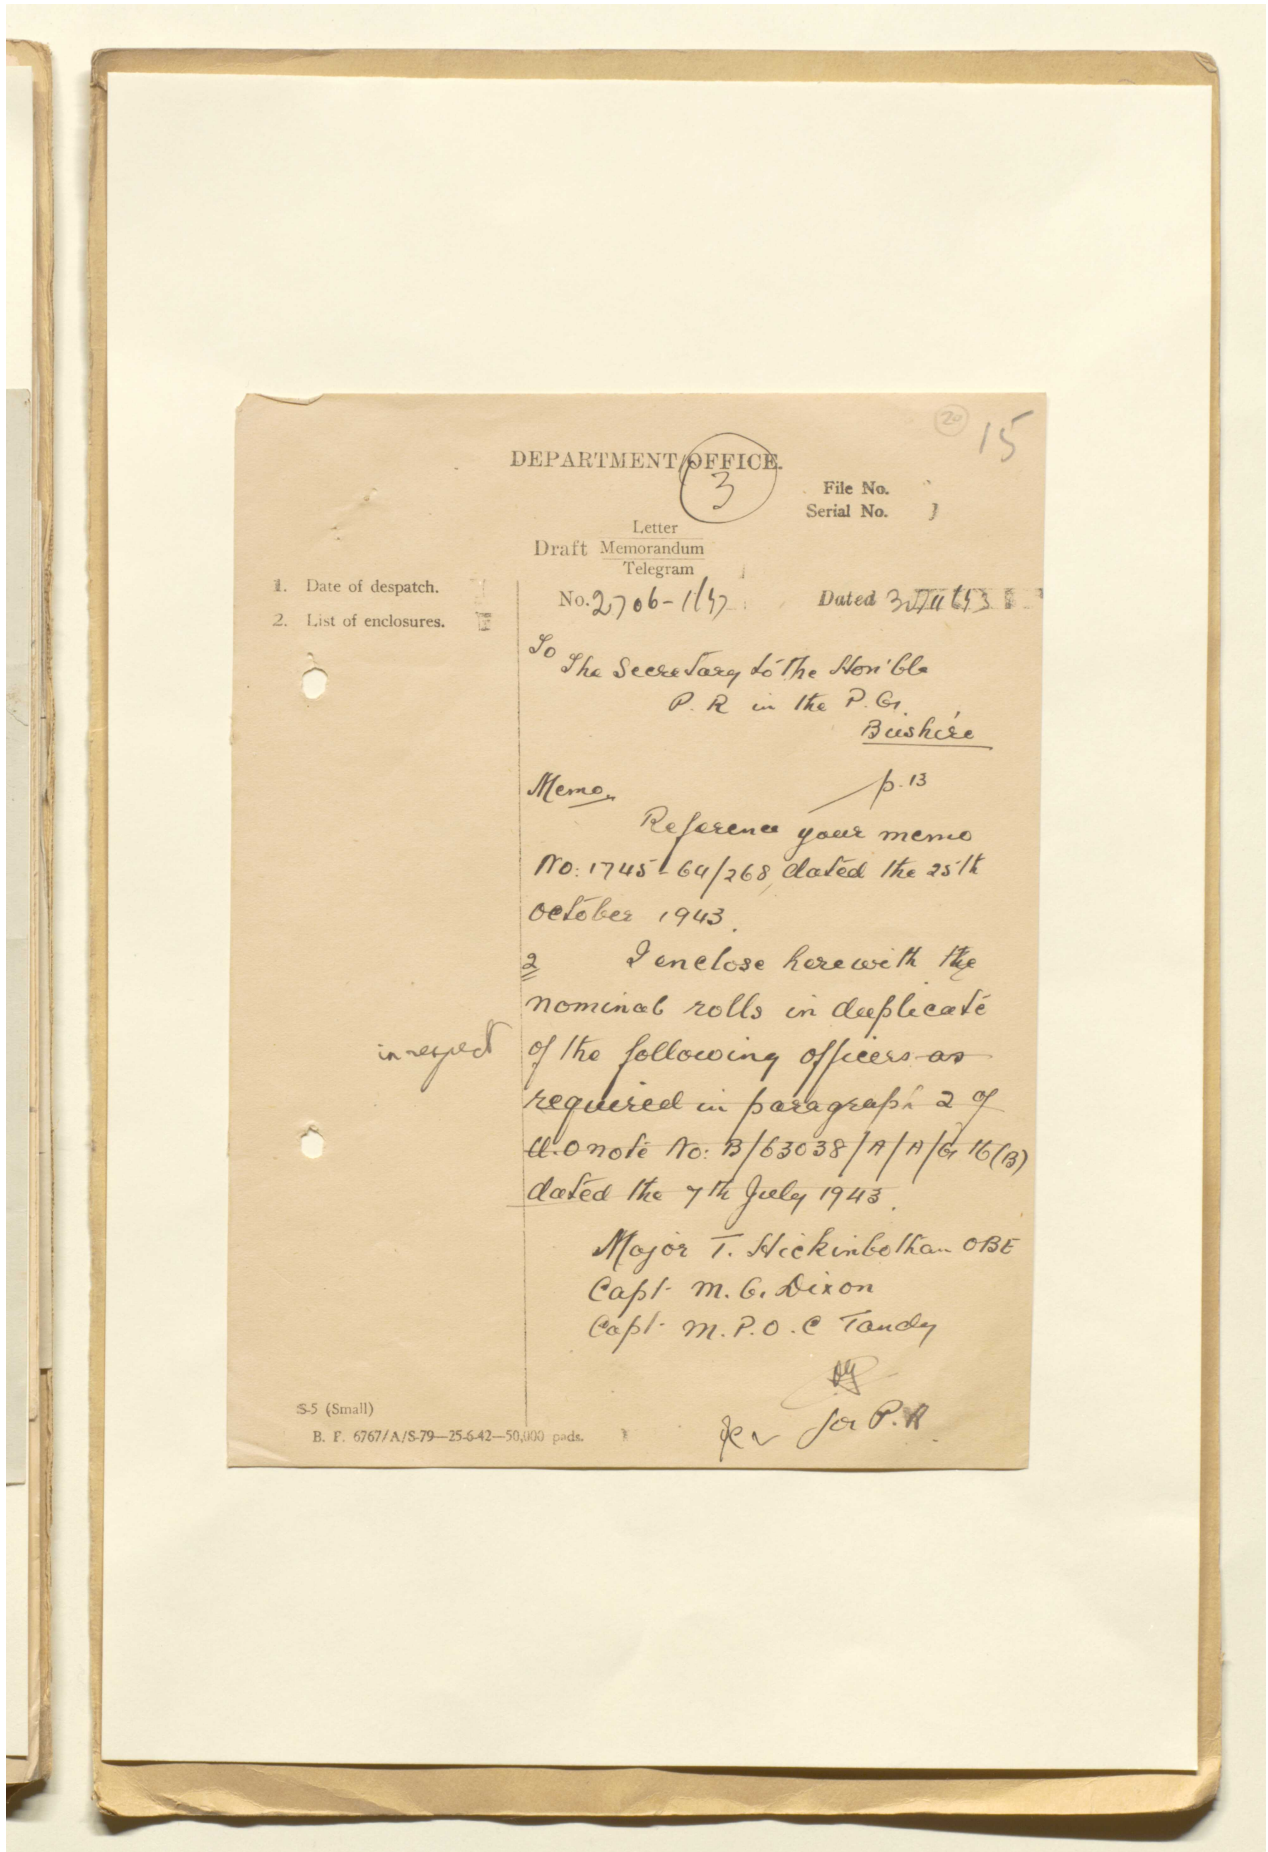 20
15
DEPARTMENT/OFFICE.
3
File No.
Serial No.
Letter
Draft Memorandum
Telegram
1. Date of despatch.
2. List of enclosures.
No. 2706-1/47
Dated
To
The Secretary to the Hon'ble
P. R in the P. G.
Bushire
Memo.
p. 13
Reference your memo
No: 1745-64/268, dated the 25th
October 1943.
2 I enclose herewith the
nominal rolls in duplicate
in respect
of the following officers as
required in paragraph 2 of
U.O note No: B/63038/A/A/G 16(B)
dated the 7th July 1943.
Major T. Hickinbotham OBE
Capt. M. G. Dixon
Capt. M. P. O. C Tandy
for P. A
S-5 (Small)
B. F. 6767/A/S-79—25-6-42—50,000 pads.